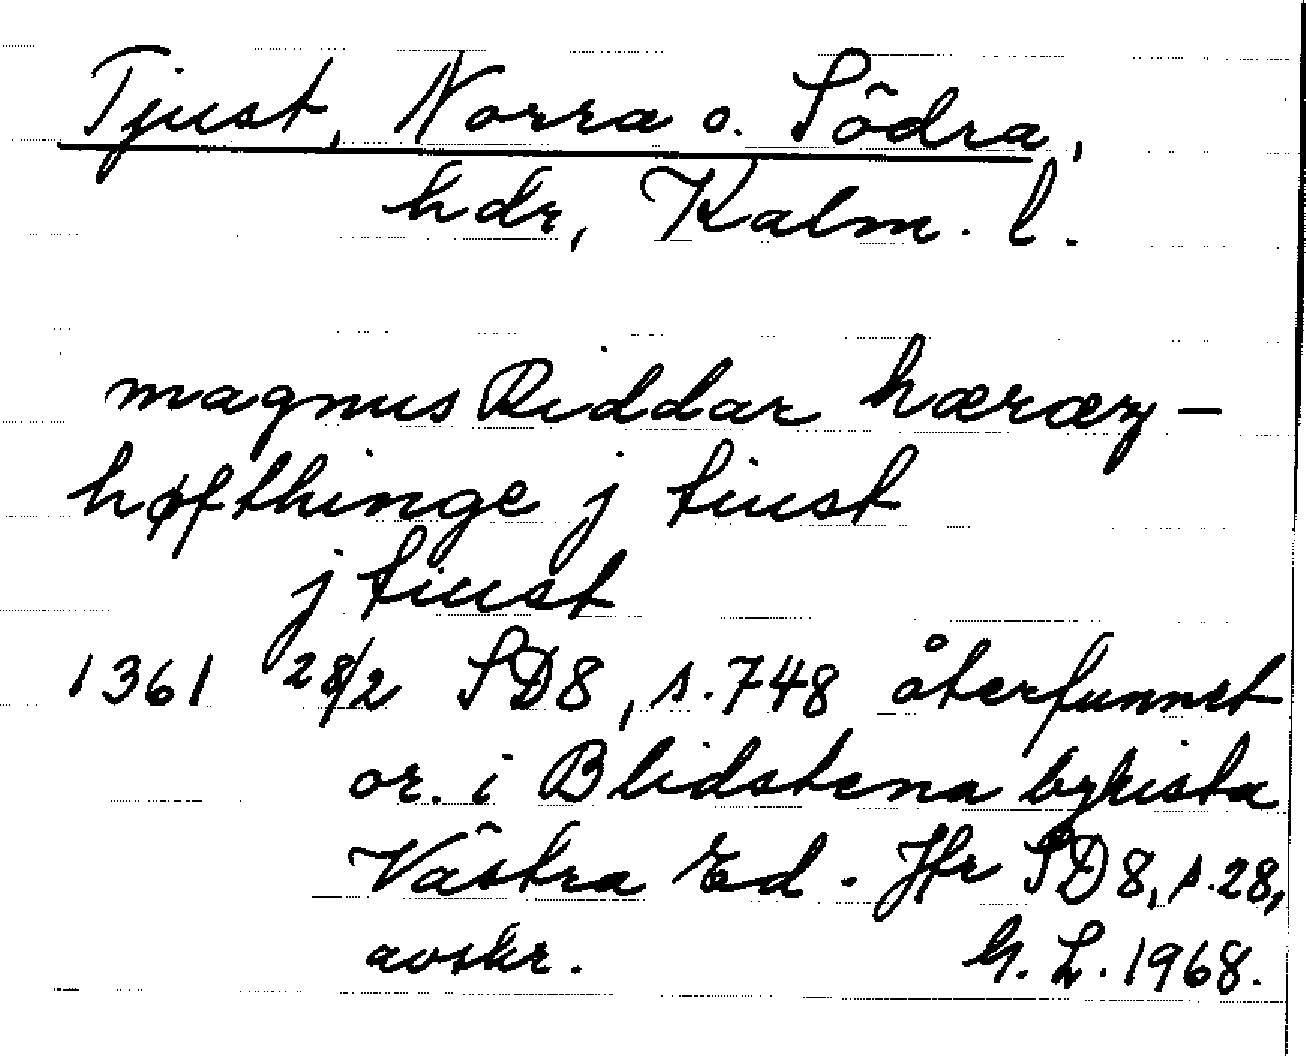 Tjust, Norra o. Södra,
hdr, Kalm. l.
magnus Riddar hæræz-
høfthinge j tiust
j tiust
1361 28/2 SD8, s. 748 återfunnet
or. i Blidstena bykista
Västra Ed. Jfr SD8, s. 28,
avskr. G. L. 1968.